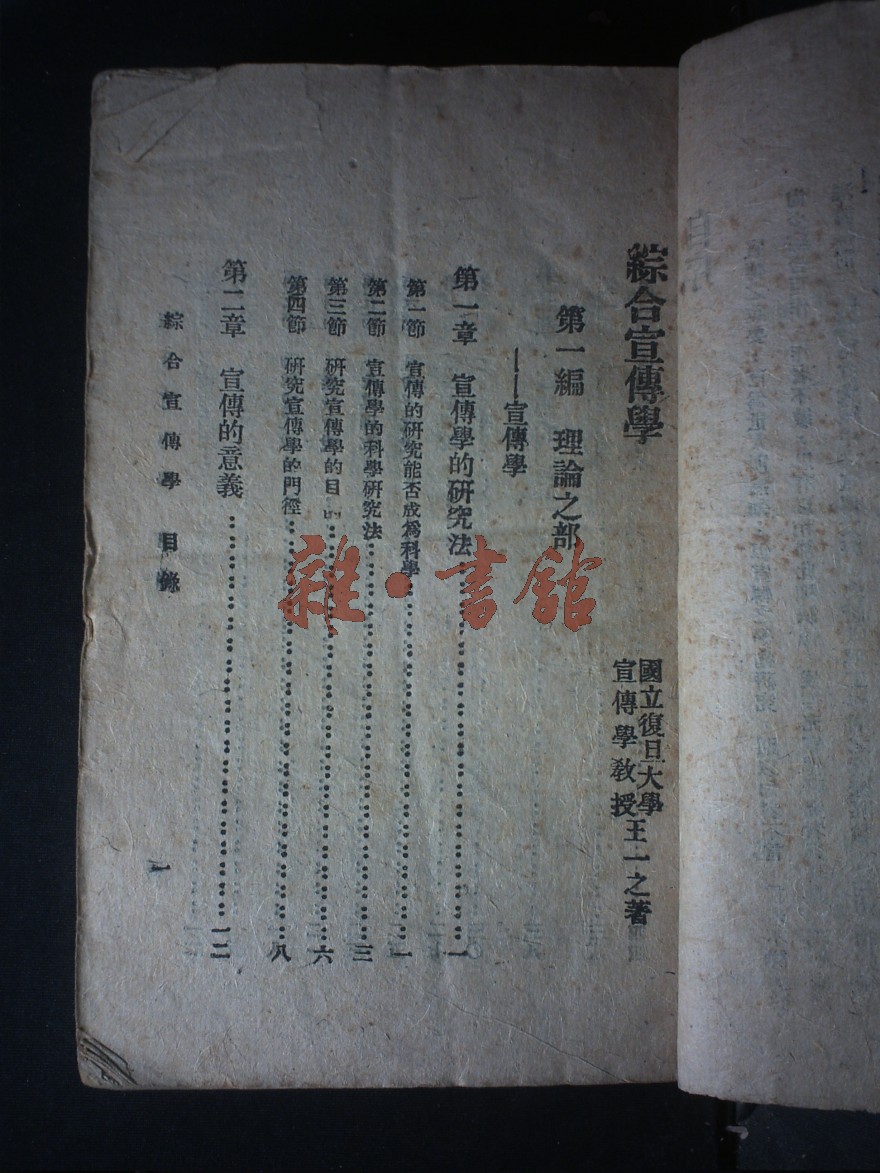 綜合宣傳學
國立復旦大學
宣傳學教授
王一之著
第一編 理論之部
——宣傳學
第一章 宣傳學的研究法……一
第一節 宣傳的研究能否成爲科學……一
第二節 宣傳學的科學研究法……三
第三節 研究宣傳學的目的……六
第四節 研究宣傳學的門徑……八
第二章 宣傳的意義……一二
綜合宣傳學 目錄
一
雜·書館